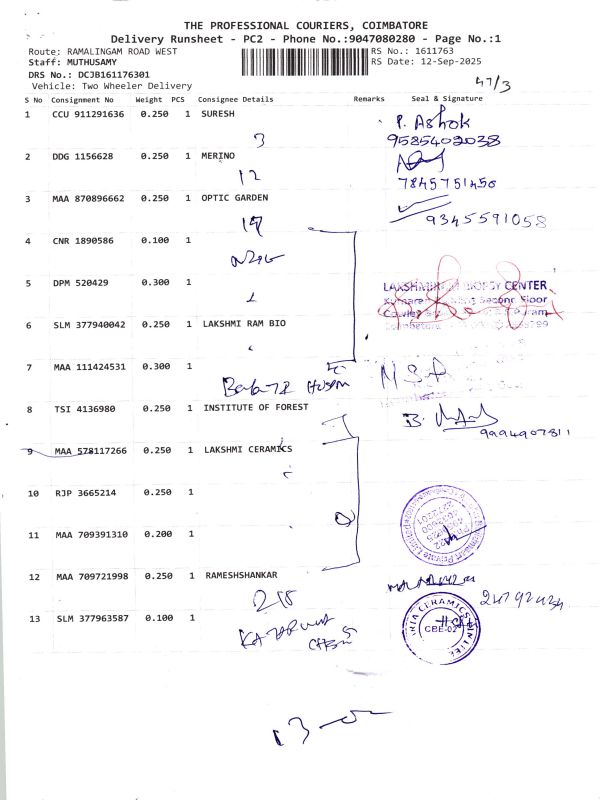 THE PROFESSIONAL COURIERS, COIMBATORE
Delivery Runsheet - PC2 - Phone No.:9047080280 - Page No.:1
Route: RAMALINGAM ROAD WEST RS No.: 1611763
Staff: MUTHUSAMY RS Date: 12-Sep-2025
DRS No.: DCJB161176301
Vehicle: Two Wheeler Delivery 47/3
S No Consignment No Weight PCS Consignee Details Remarks Seal & Signature
1 CCU 911291636 0.250 1 SURESH P. Ashok
3 9585402038
2 DDG 1156628 0.250 1 MERINO
12 7845751450
3 MAA 870896662 0.250 1 OPTIC GARDEN
9345591058
4 CNR 1890586 0.100 1
5 DPM 520429 0.300 1
LAKSHMI CENTER
Second Floor
6 SLM 377940042 0.250 1 LAKSHMI RAM BIO
7 MAA 111424531 0.300 1
8 TSI 4136980 0.250 1 INSTITUTE OF FOREST
9994907811
9 MAA 578117266 0.250 1 LAKSHMI CERAMICS
10 RJP 3665214 0.250 1
11 MAA 709391310 0.200 1
12 MAA 709721998 0.250 1 RAMESHSHANKAR
13 SLM 377963587 0.100 1
CERAMICS
CBE-02
13